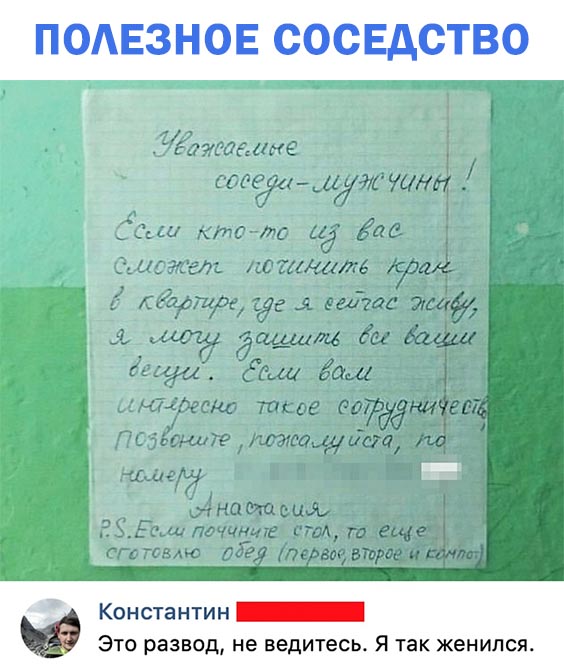 ПОЛЕЗНОЕ СОСЕДСТВО
Уважаемые
соседи-мужчины!
Если кто-то из вас
сможет починить кран
в квартире, где я сейчас живу,
я могу зашить все ваши
вещи. Если вам
интересно такое сотрудничеств
позвоните, пожалуйста, по
номеру
Анастасия
P.S. Если почините стол, то еще
сготовлю обед (первое, второе и компот)
Константин
Это развод, не ведитесь. Я так женился.